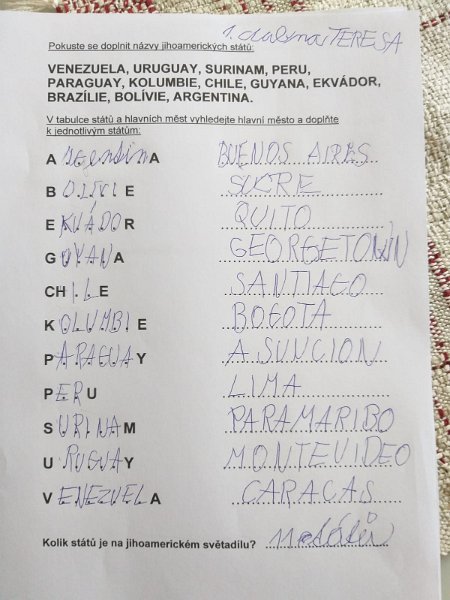 1. dubna TERESA
Pokuste se doplnit názvy jihoamerických států:
VENEZUELA, URUGUAY, SURINAM, PERU,
PARAGUAY, KOLUMBIE, CHILE, GUYANA, EKVÁDOR,
BRAZÍLIE, BOLÍVIE, ARGENTINA.
V tabulce států a hlavních měst vyhledejte hlavní město a doplňte
k jednotlivým státům:
Argentina BUENOS AIRES
BOLIVIE SUCRE
EKVÁDOR QUITO
GUYANA GEORGETOWN
CHILE SANTIAGO
KOLUMBIE BOGOTA
PARAGUAY ASUNCION
PERU LIMA
SURINAM PARAMARIBO
URUGUAY MONTEVIDEO
VENEZUELA CARACAS
Kolik států je na jihoamerickém světadílu? 11 států